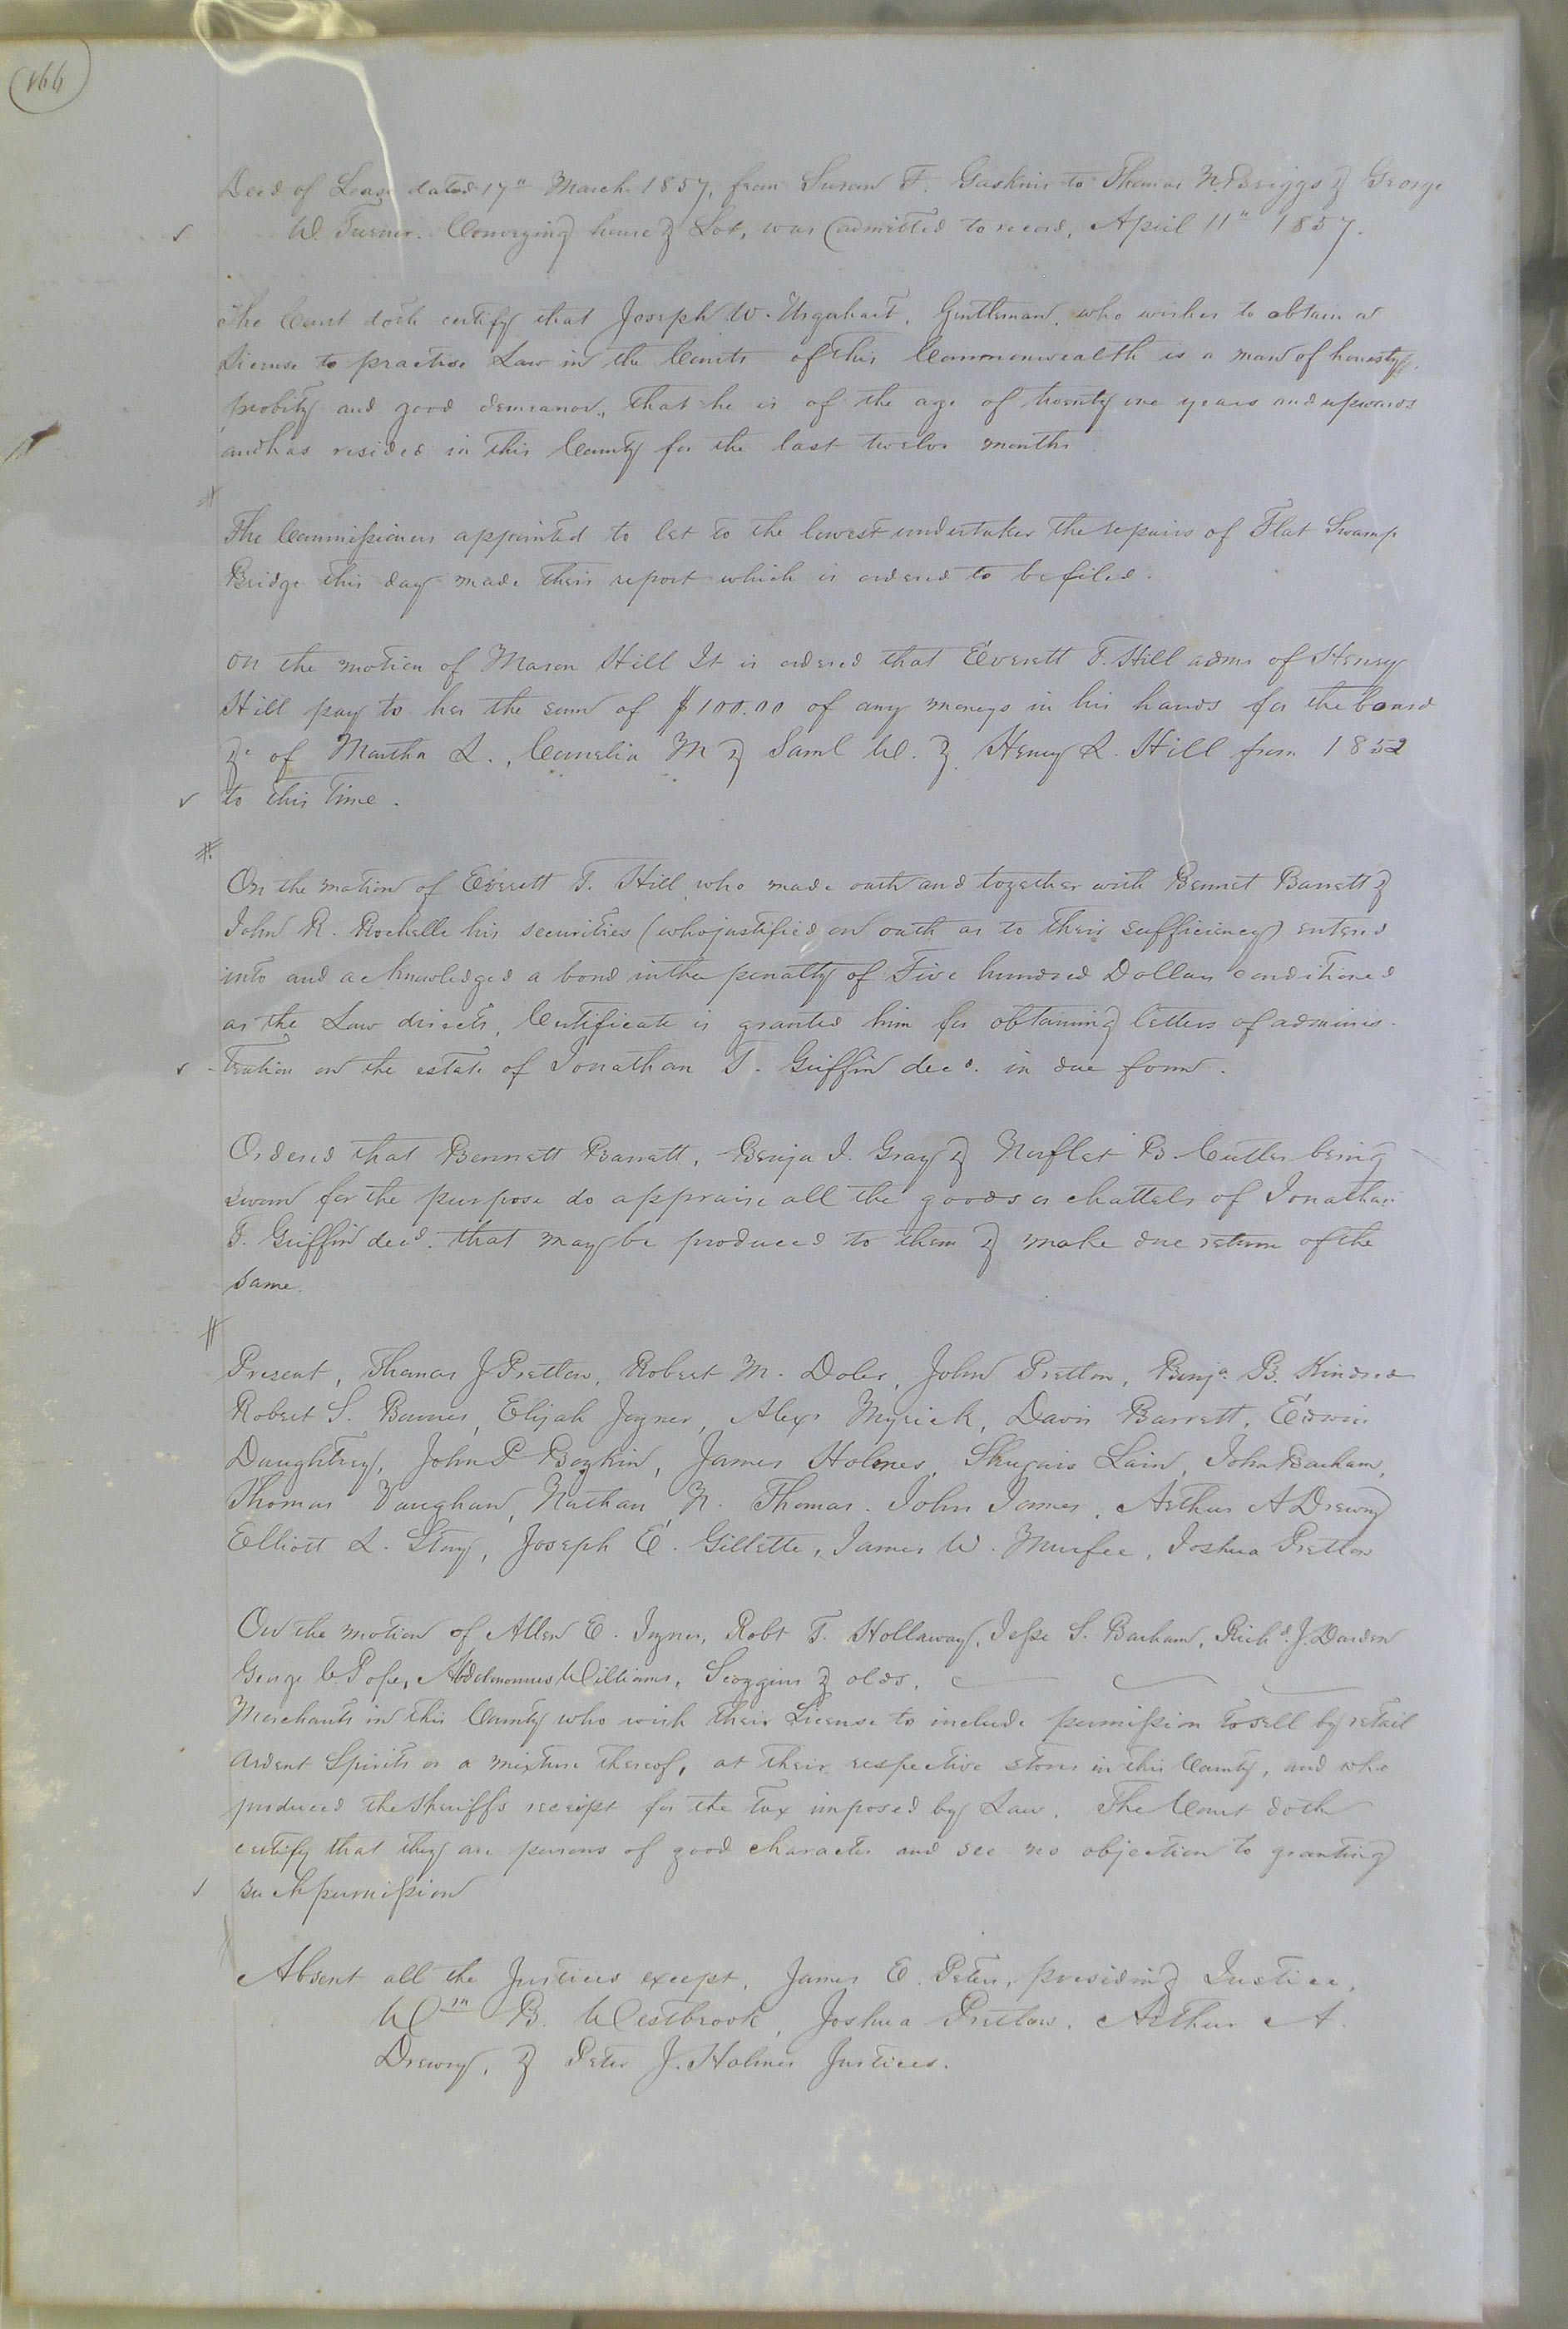 166
Deed of Lease dated 17" March 1857, from Susan F. Gaskins to Thomas N. Briggs & George
W. Turner. Conveying house & Lot, was admitted to record, April 11" 1857.
The Court doth certify that Joseph W. Urquhart, Gentleman, who wishes to obtain a
License to practice Law in the Courts of this Commonwealth is a man of honesty,
probity and good demeanor, that he is of the age of twenty one years and upwards
and has resided in this County for the last twelve months
The Commissioners appointed to let to the lowest undertaker the repairs of Flat Swamp
Bridge this day made their report which is ordered to be filed.
On the motion of Mason Hill It is ordered that Everett T. Hill admr of Henry
Hill pay to her the sum of $100.00 of any moneys in his hands for the board
&c of Martha L., Cornelia M & Saml W. & Henry L. Hill from 1852
to this time.
On the motion of Everett T. Hill who made oath and together with Bennet Barrett &
John R. Rochelle his securities (who justified on oath as to their sufficiency) entered
into and acknowledged a bond in the penalty of Five hundred Dollars conditioned
as the Law directs, Certificate is granted him for obtaining letters of adminis-
-tration on the estate of Jonathan T. Griffin decd. in due form.
Ordered that Bennett Barrett, Benja J. Gray & Norflet B. Cutler being
sworn for the purpose do appraise all the goods & chattels of Jonathan
T. Griffin decd. that may be produced to them & make due return of the
same.
Present, Thomas J Pretlow, Robert M. Doles, John Pretlow, Benja. B. Kindred
Robert S. Barnes, Elijah Joyner, Alexr Myrick, Davis Barrett, Edwin
Daughtrey, John P Boykin, James Holmes, Lain, John Barham,
Thomas Vaughan, Nathan N. Thomas. John James, Arthur A Drewry
Elliott L. Story, Joseph E. Gillette, James W. Murfee, Joshua Pretlow
On the motion of Allen E. Joyner, Robt T. Hollaway, Jesse S. Barham, Richd. J. Darden
George C. Pope, Williams, Scoggins & olds,
Merchants in this County who wish their License to include permission to sell by retail
Ardent Spirits or a mixture thereof, at their respective stores in this County, and who
produced the Sheriffs receipt for the tax imposed by Law. The Court doth
certify that they are persons of good character and see no objection to granting
such permission
Absent all the Justices except, James E. Peters, presiding Justice,
Wm B. Westbrook, Joshua Pretlow, Arthur A.
Drewry, & Peter J. Holmes Justices.